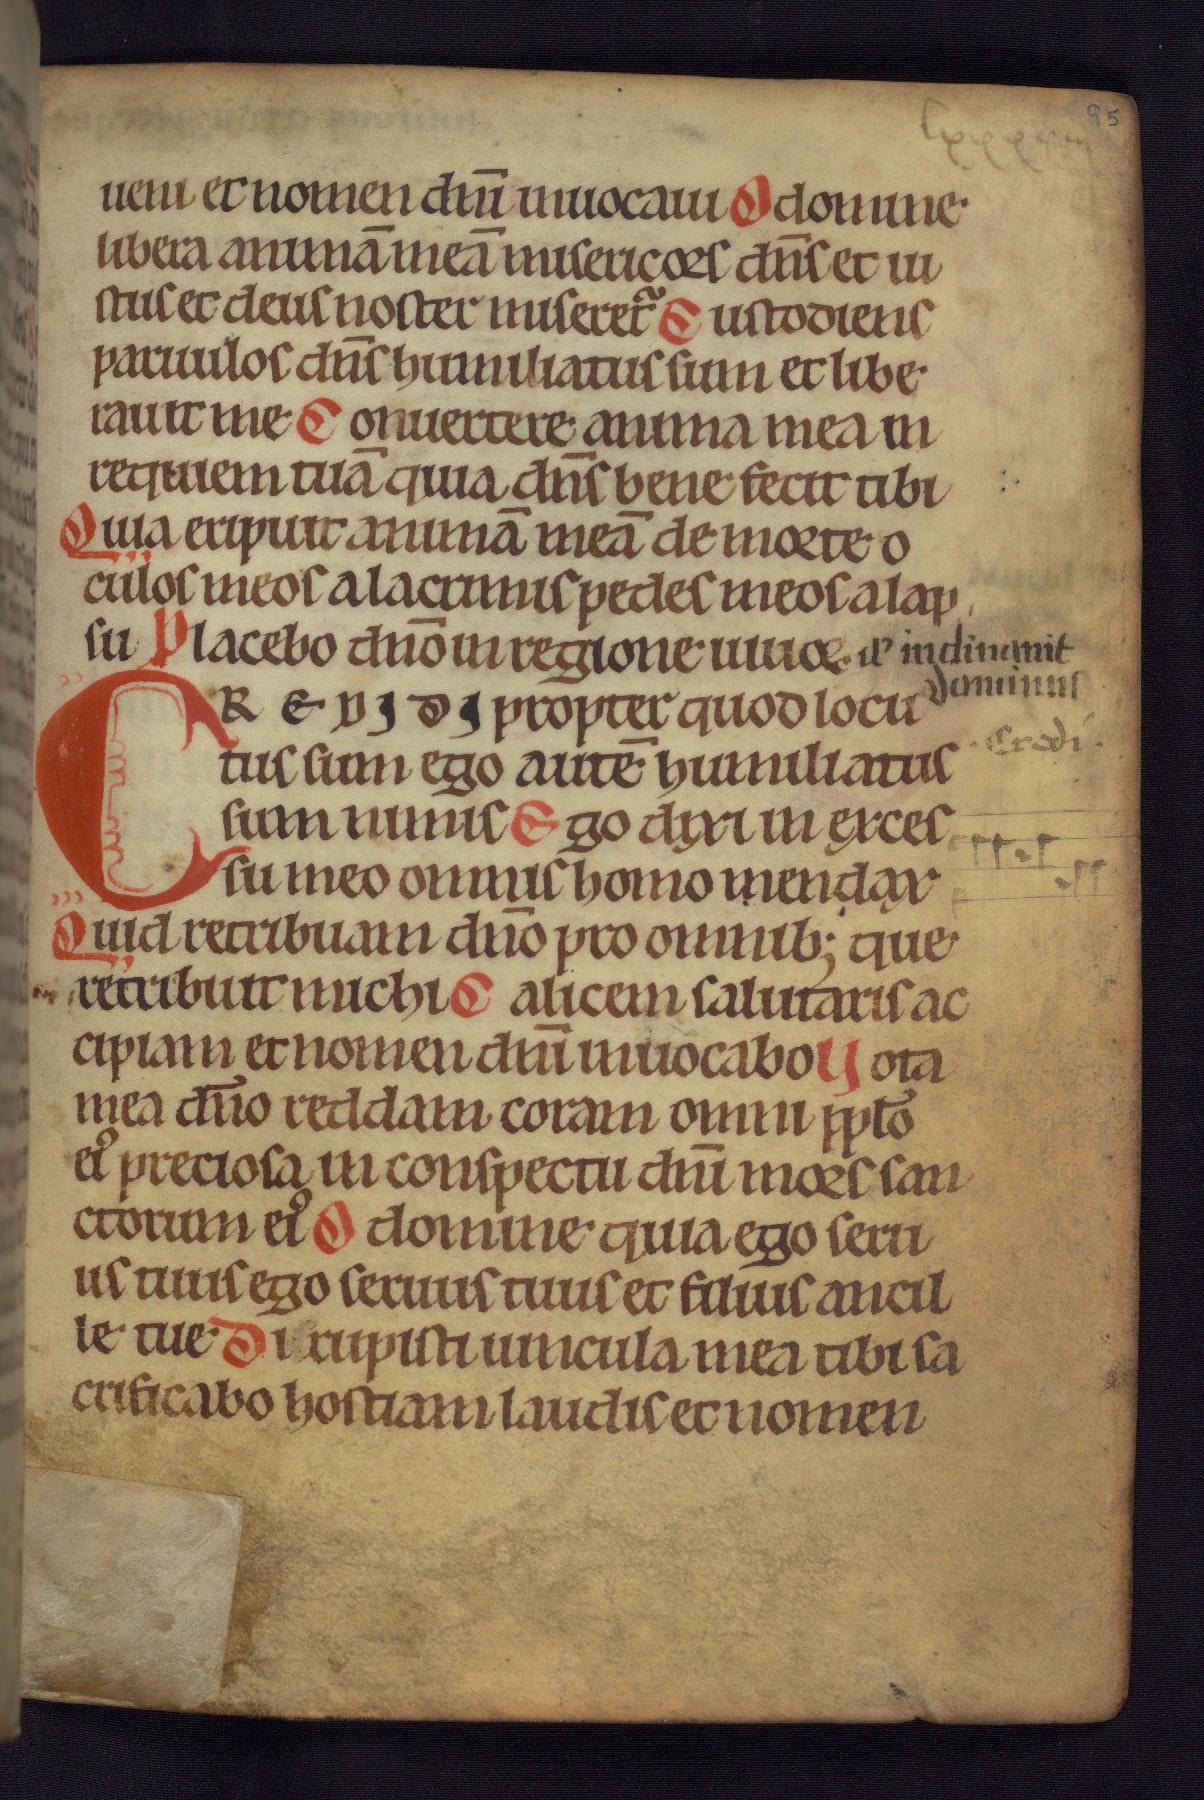 95
lxxxxv
ueni et nomen dn̄i inuocaui O domine
libera animā meā misericors dn̄s et iu
stus et deus noster miseret᷑ Custodiens
paruulos dn̄s humiliatus sum et libe
rauit me Conuertere anima mea in
requiem tuā quia dn̄s bene fecit tibi
Quia eripuit animā meā de morte o
culos meos a lacrimis pedes meos a lap
su Placebo dn̄o in regione uiuoꝝ
inclinauit
dominus
CREDIDI propter quod locu
Credi
tus sum ego autē humiliatus
sum nimis Ego dixi in exces
su meo omnis homo mendax
Quid retribuam dn̄o pro omnib; que
retribuit michi Calicem salutaris ac
cipiam et nomen dn̄i inuocabo Uota
mea dn̄o reddam coram omni pplō
ei᷒ preciosa in conspectu dn̄i mors san
ctorum ei᷒ O domine quia ego seru
us tuus ego seruus tuus et filius ancil
le tue Dirupisti uincula mea tibi sa
crificabo hostiam laudis et nomen